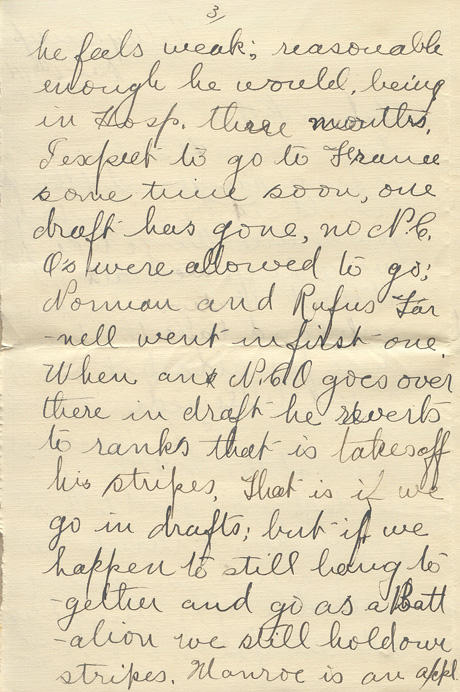 3/
he feels weak; reasonable
enough he would, being
in Hosp. three months.
I expect to go to France
some time soon, one
draft has gone, no N.C.
Os were allowed to go;
Norman and Rufus Far
-nell went in first one.
When an N.C.O goes over
there in draft he reverts
to ranks that is takes off
his stripes. That is if we
go in drafts; but if we
happen to still hang to
-gether and go as a Batt
-alion we still hold our
stripes. Manroe is an appl